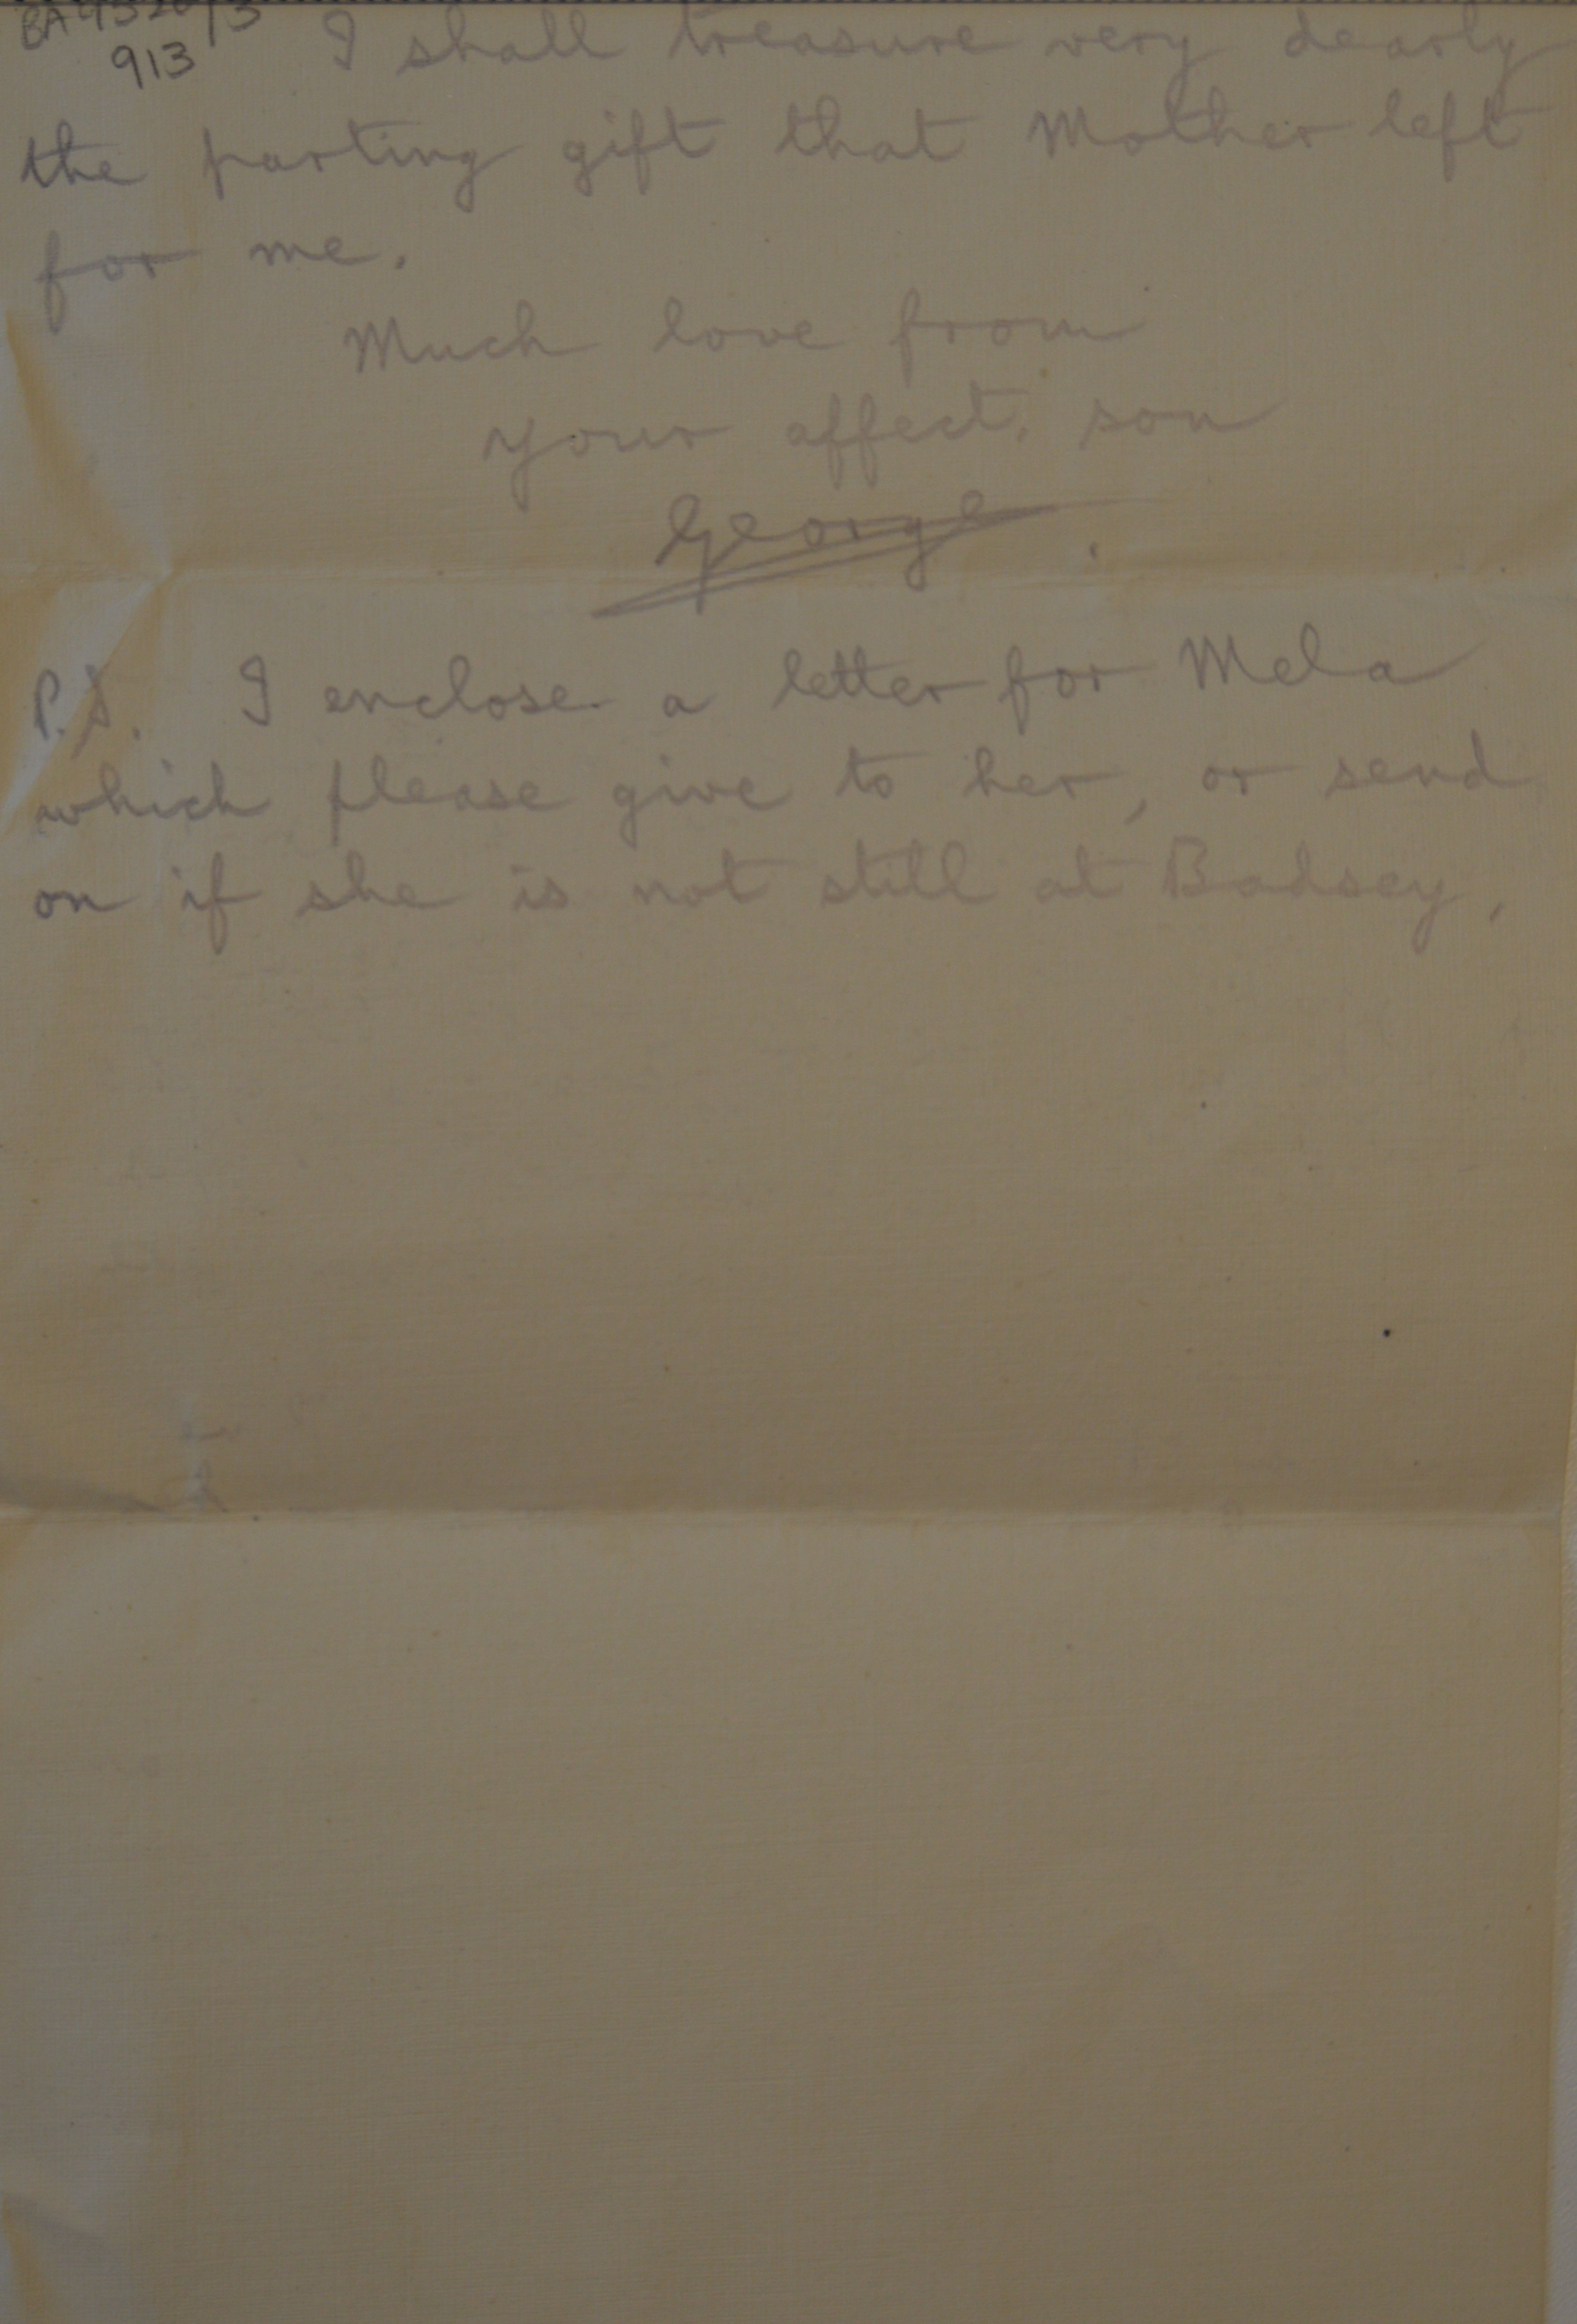 913
I shall treasure very dearly
the parting gift that Mother left
for me.
Much love from
your affect. son
George.
P.S. I enclose a letter for Mela
which please give to her, or send
on if she is not still at Badsey.